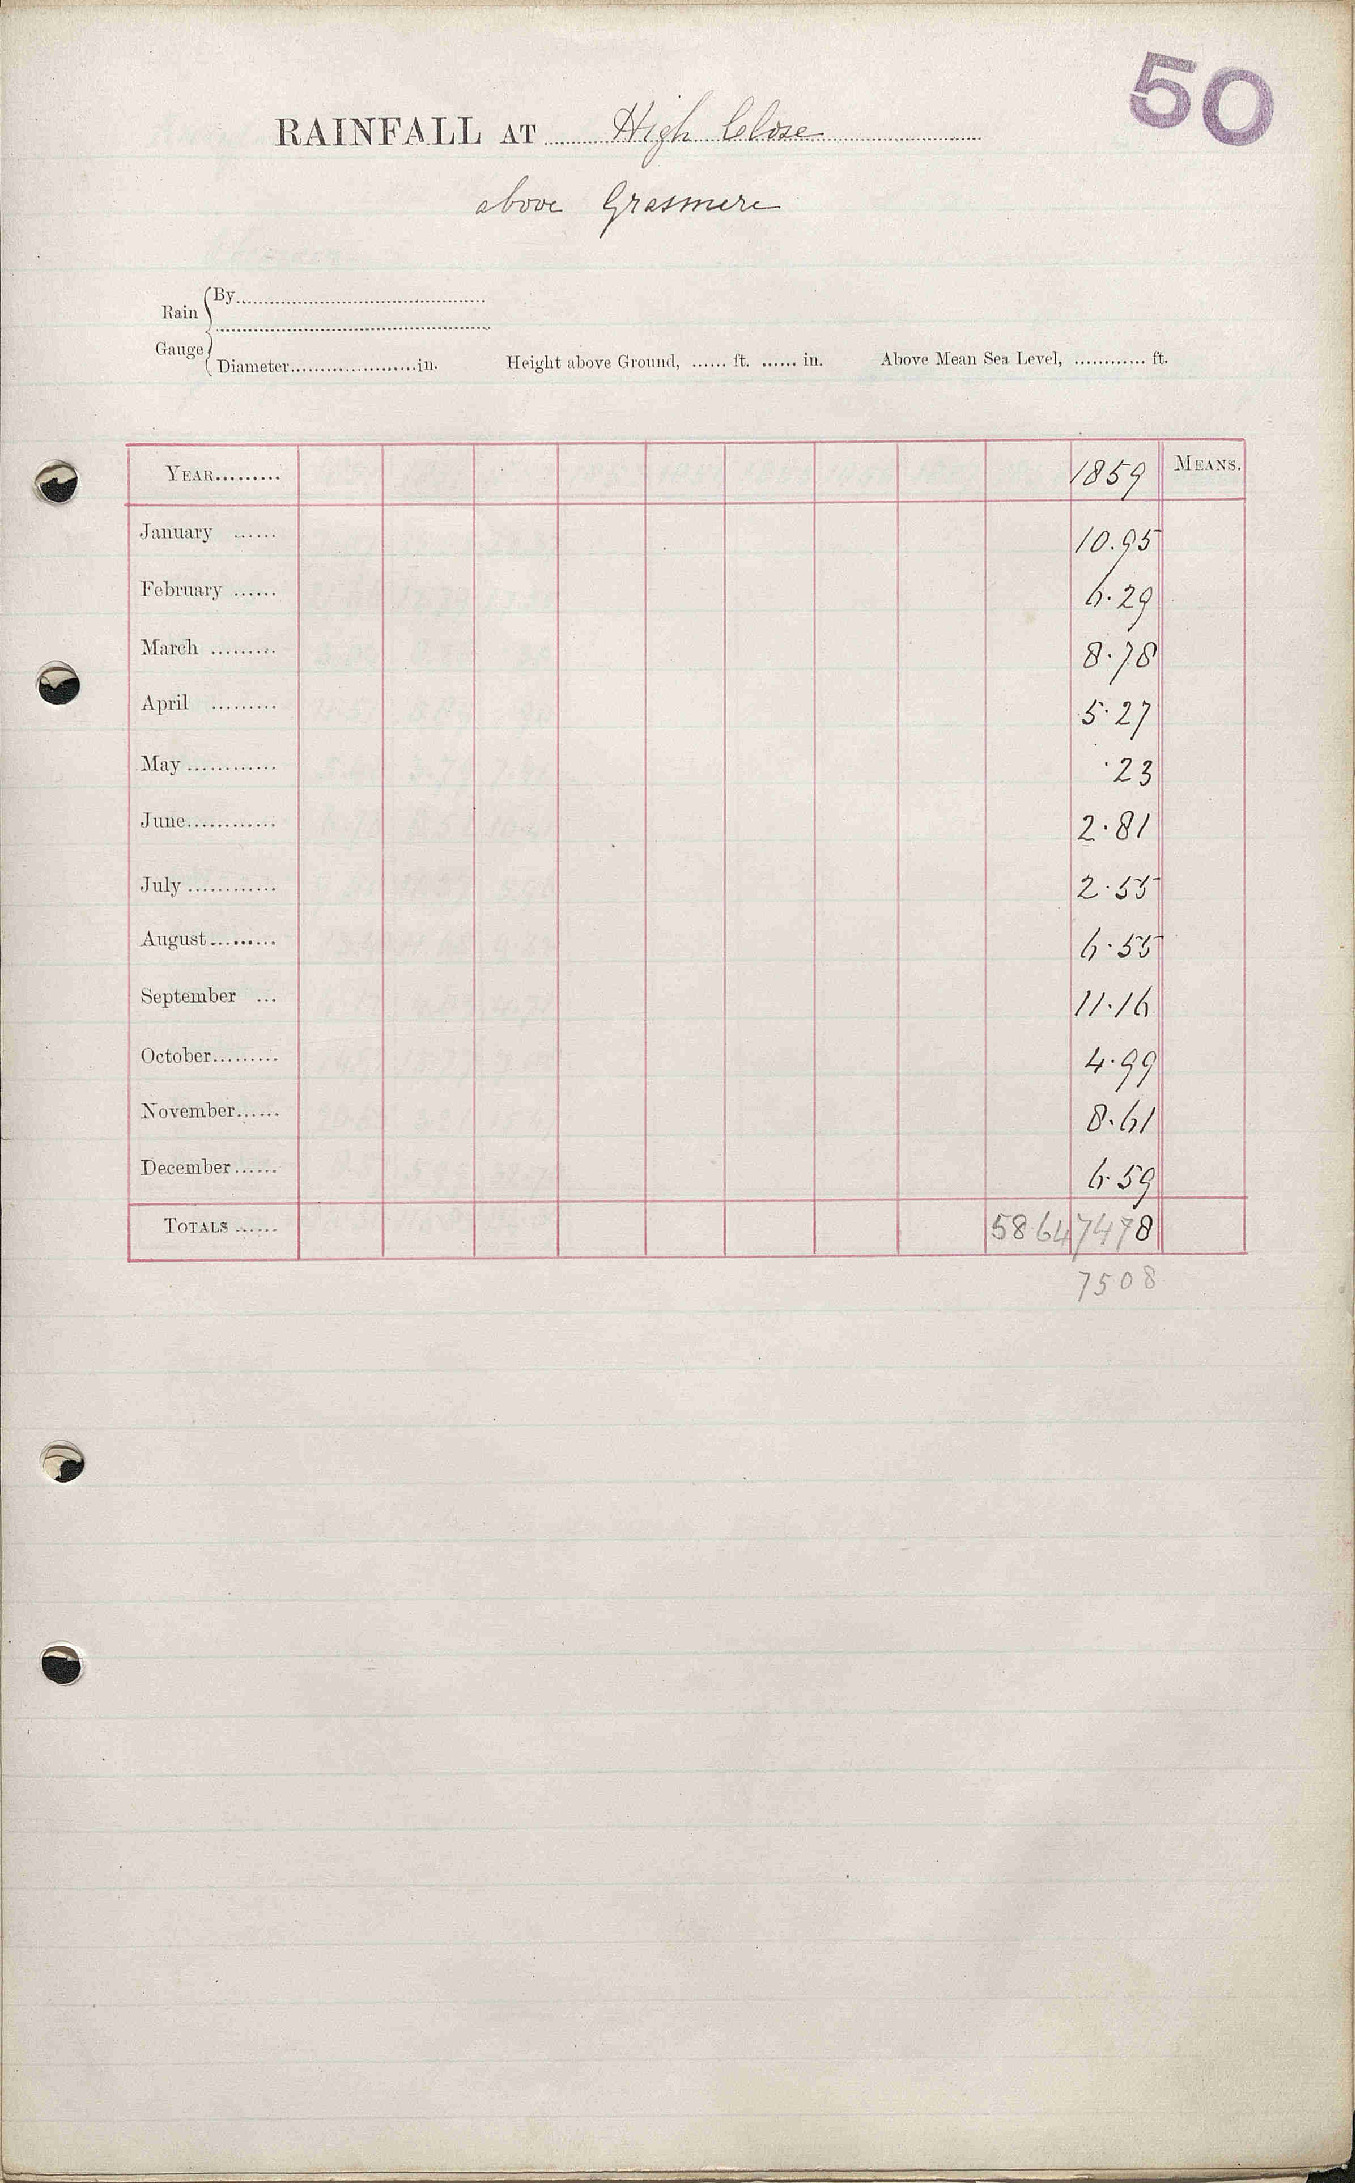 50
RAINFALL AT High Close
above Grasmere
Rain Gauge { By
Diameter in. Height above Ground, ft. in. Above Mean Sea Level, ft.
YEAR 1859 MEANS.
January 10.95
February 6.29
March 8.78
April 5.27
May .23
June 2.81
July 2.55
August 6.55
September 11.16
October 4.99
November 8.61
December 6.59
TOTALS 58.64 74.78
7508